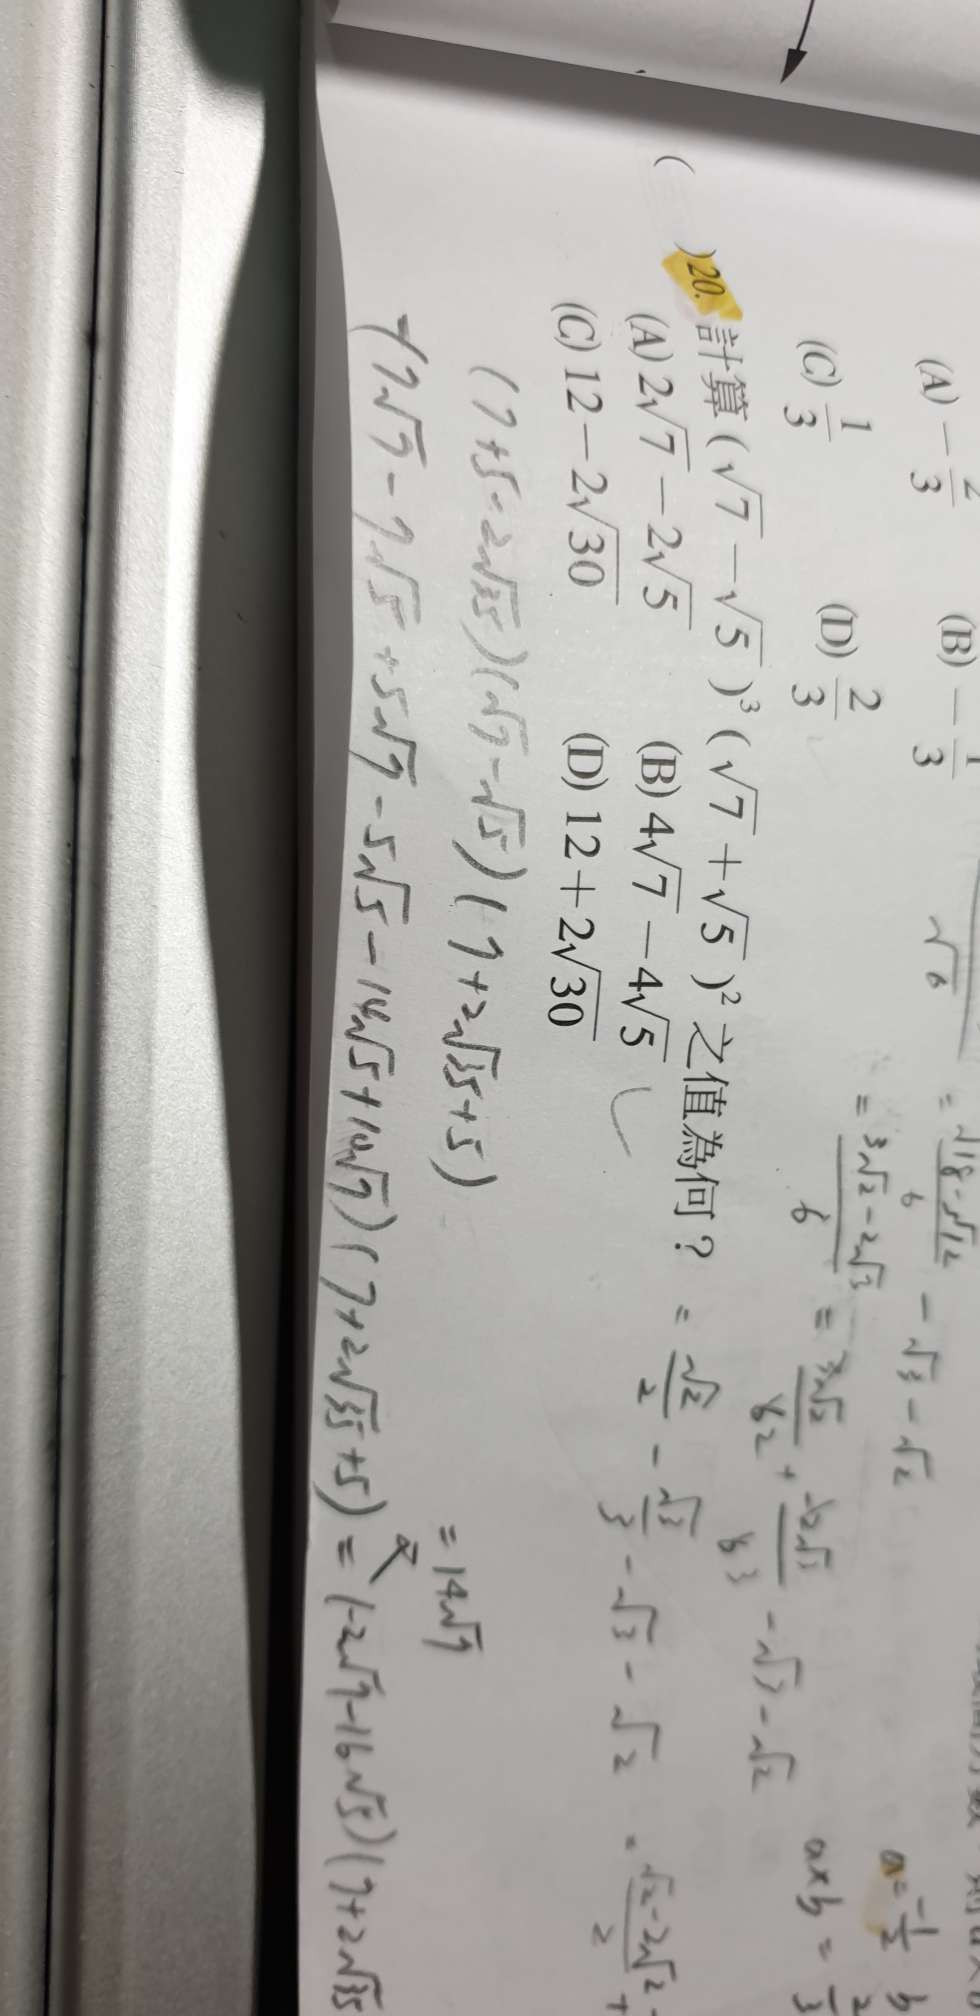 (A) −2/3 (B) −1/3
(C) 1/3 (D) 2/3
√6
= (√18 - √12)/6 - √3 - √2
= (3√2 - 2√3)/6 = 3√2/6 2 + -2√3/6 3 - √3 - √2
= √2/2 - √3/3 - √3 - √2
a = -1/2
a×b =
( )20. 計算 (√7 − √5)³ (√7 + √5)² 之值為何？
(A) 2√7 − 2√5 (B) 4√7 − 4√5
(C) 12 − 2√30 (D) 12 + 2√30
(7+5-2√35)(√7-√5)(7+2√35+5)
= 14√7
(7√7-7√5+5√7-5√5-14√5+10√7)(7+2√35+5) = (-2√7-16√5)(7+2√35